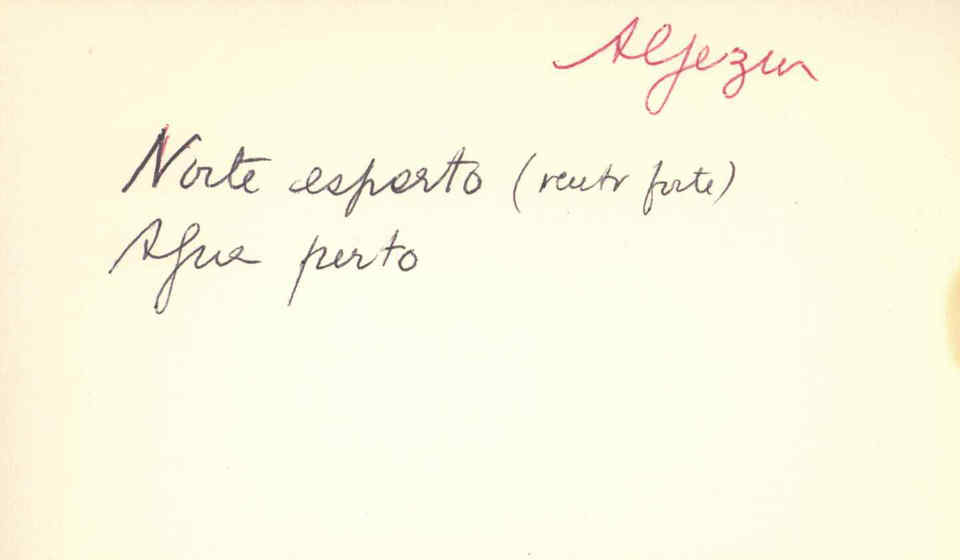 Aljezur
Norte esperto (vento forte)
Agua perto